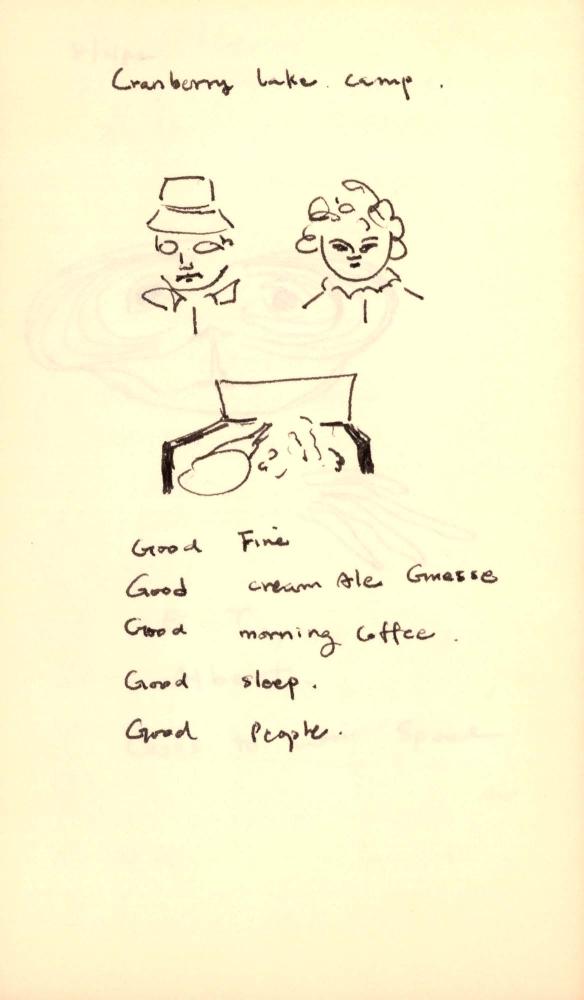 Cranberry Lake camp.
Good Fire
Good cream Ale
Good morning Coffee.
Good sleep.
Good People.